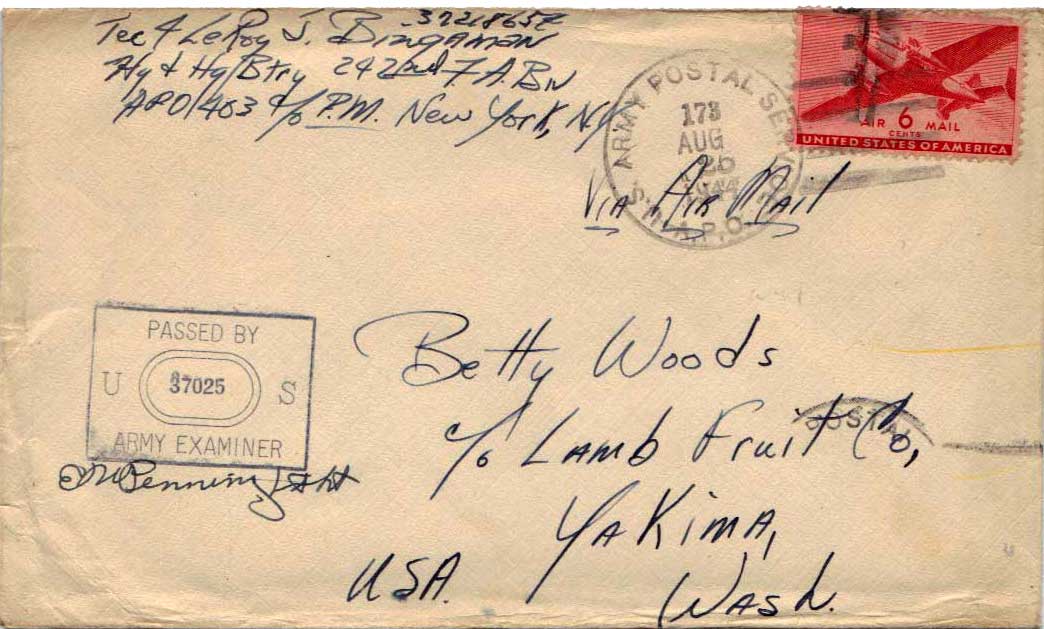 37218652
Tec 4 LeRoy J. Bingaman
Hq & Hq Btry 242nd F.A. Bn
APO 403 c/o P.M. New York, N.Y.
ARMY POSTAL SERVICE
173
AUG
1944
A.P.O.
AIR 6 MAIL
CENTS
UNITED STATES OF AMERICA
Via Air Mail
PASSED BY
U 37025 S
ARMY EXAMINER
Betty Woods
c/o Lamb Fruit Co,
POSTAL
Yakima,
USA. Wash.